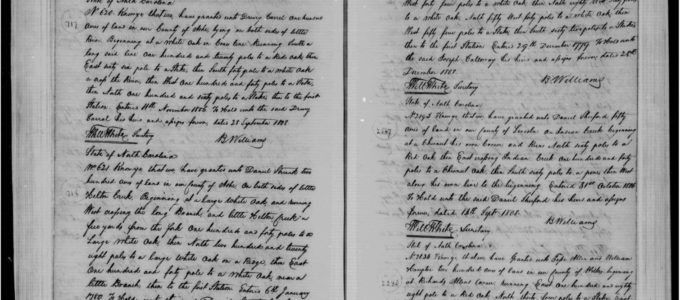 State of North Carolina
No 620 Know ye that we have granted unto Drury Carrel one hundred
acres of land in our County of Ashe lying on both sides of little
River Beginning at a White Oak in Coxs line Running South a
long said line one hundred and twenty poles to a Red Oak then
East sixty six poles to a Stake, then South forty poles to a White oak
on the River, then West one hundred and forty poles to a Stake
then North one hundred and sixty poles to a Stake then to the first
Station Entered 11th November 1800 To Hold unto the said Drury
Carrel his heirs and assigns forever dated 28 September 1808
Will White Secretary
B Williams
State of North Carolina
No 621 Know ye that we have granted unto Daniel two
hundred acres of land in our County of Ashe On both sides of little
Helton Creek Beginning at a large White Oak and running
West crossing the long Branch and little Helton Creek a
few yards from the fork One hundred and forty poles to a
Large White Oak, then North two hundred and twenty
eight poles to a large White Oak on a Ridge, then East
One hundred and forty poles to a White Oak near a
little Branch then to the first Station Entered 6th January
1780 To Hold unto
717
four poles to a White Oak North eighty West
to a White Oak, North fifty West fifty poles to a White Oak then
West fifty four poles to a White Oak then South sixty two poles to a Stake
then to the first Station Entered 29th December 1779 To Hold unto
the said Joseph Calloway his heirs and assigns forever, dated 25th
December 1808
B Williams
Will White Secretary
State of North Carolina
Know ye that we have granted unto Daniel Shuford fifty
acres of land in our County of Lincoln On Indian Creek beginning
at a Chesnut his own Corner and Runs North sixty poles to a
Red Oak then East crossing Indian Creek one hundred and forty
poles to a Chesnut Oak, then South sixty poles to a pine, then West
along his own line to the beginning Entered 31st October 1806
To Hold unto the said Daniel Shuford his heirs and assigns
forever, dated 14th Sept 1808
B Williams
Will White Secretary
State of North Carolina
Know ye that we have granted unto Allen and William
two hundred acres of land in our County of Wilkes beginning
at Richards Allens Corner running East one hundred and eighty
eight poles to a Red Oak North